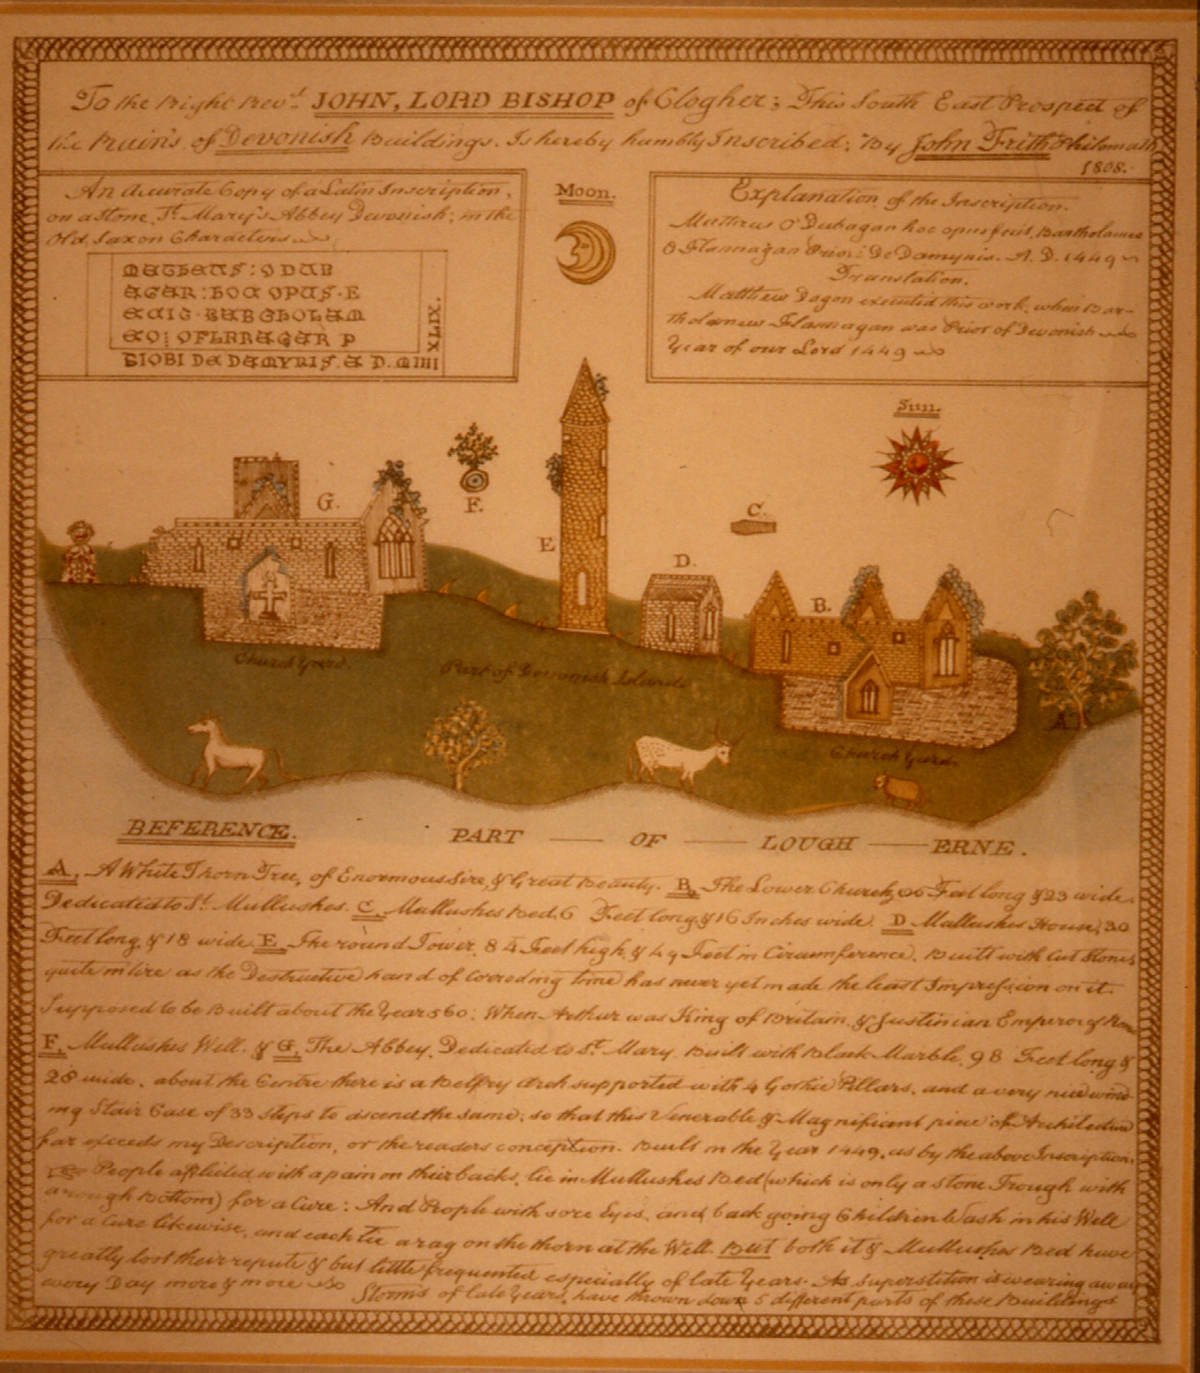 To the Right Rev.d JOHN, LORD BISHOP of Clogher; This South East Prospect of
the Ruin's of Devonish Buildings. Is hereby humbly Inscribed; By John Frith Philomath
1808.
An Accurate Copy of a Latin Inscription,
on a Stone, St. Mary's Abbey Devonish; in the
Old Saxon Characters
MATHEUS: O DUB
AGAN: HOC OPUS. F
BARTHOLAM
EO: OFLANNAGAN P
DE DAMYNIS. A D. MIIII
XLIX.
Moon.
Explanation of the Inscription.
Mattheus O'Dubagan hoc opus fecit, Bartholameo
O Flannagan Prior: De Damynis. A. D. 1449
Translation.
Matthew Dogan executed this work, when Bar-
tholomew Flannagan was Prior of Devonish
Year of our Lord 1449
Sun.
G.
F.
E
C.
D.
B.
A
Church Yard.
Part of Devonish Island.
Church Yard.
REFERENCE.
PART — OF — LOUGH — ERNE.
A. A White Thorn Tree, of Enormous Size, & Great Beauty. B. The Lower Church, Feet long & 23 wide.
Dedicated to St. Mullushes. C. Mullushes Bed. 6 Feet long, & 16 Inches wide. D Mullushes House, 30
Feet long, & 18 wide. E. The round Tower. 84 Feet high, & 49 Feet in Circumference. Built with Cut Stone,
quite intire as the Destructive hand of Corroding time has never yet made the least Impression on it.
Supposed to be Built about the Year 560: When Arthur was King of Britain, & Justinian Emperor of Rome
F. Mullushes Well. & G. The Abbey. Dedicated to St. Mary. Built with Black Marble. 98 Feet long &
28 wide. about the Centre there is a Belfry Arch supported with 4 Gothic Pillars, and a very nice wind-
ing Stair Case of 33 steps to ascend the same; so that this Venerable & Magnificent piece of Architecture
far exceeds my Description, or the readers conception. Built in the Year 1449, as by the above Inscription.
People afflicted with a pain in their backs, lie in Mullushes Bed (which is only a stone Trough with
a rough Bottom) for a Cure: And People with sore Eyes, and back going Children Wash in his Well
for a Cure likewise, and each tie a rag on the thorn at the Well. But both it & Mullushes Bed have
greatly lost their repute & but little frequented especially of late Years. As superstition is wearing away
every Day more & more
Storms of late Years, have thrown down 5 different parts of these Buildings